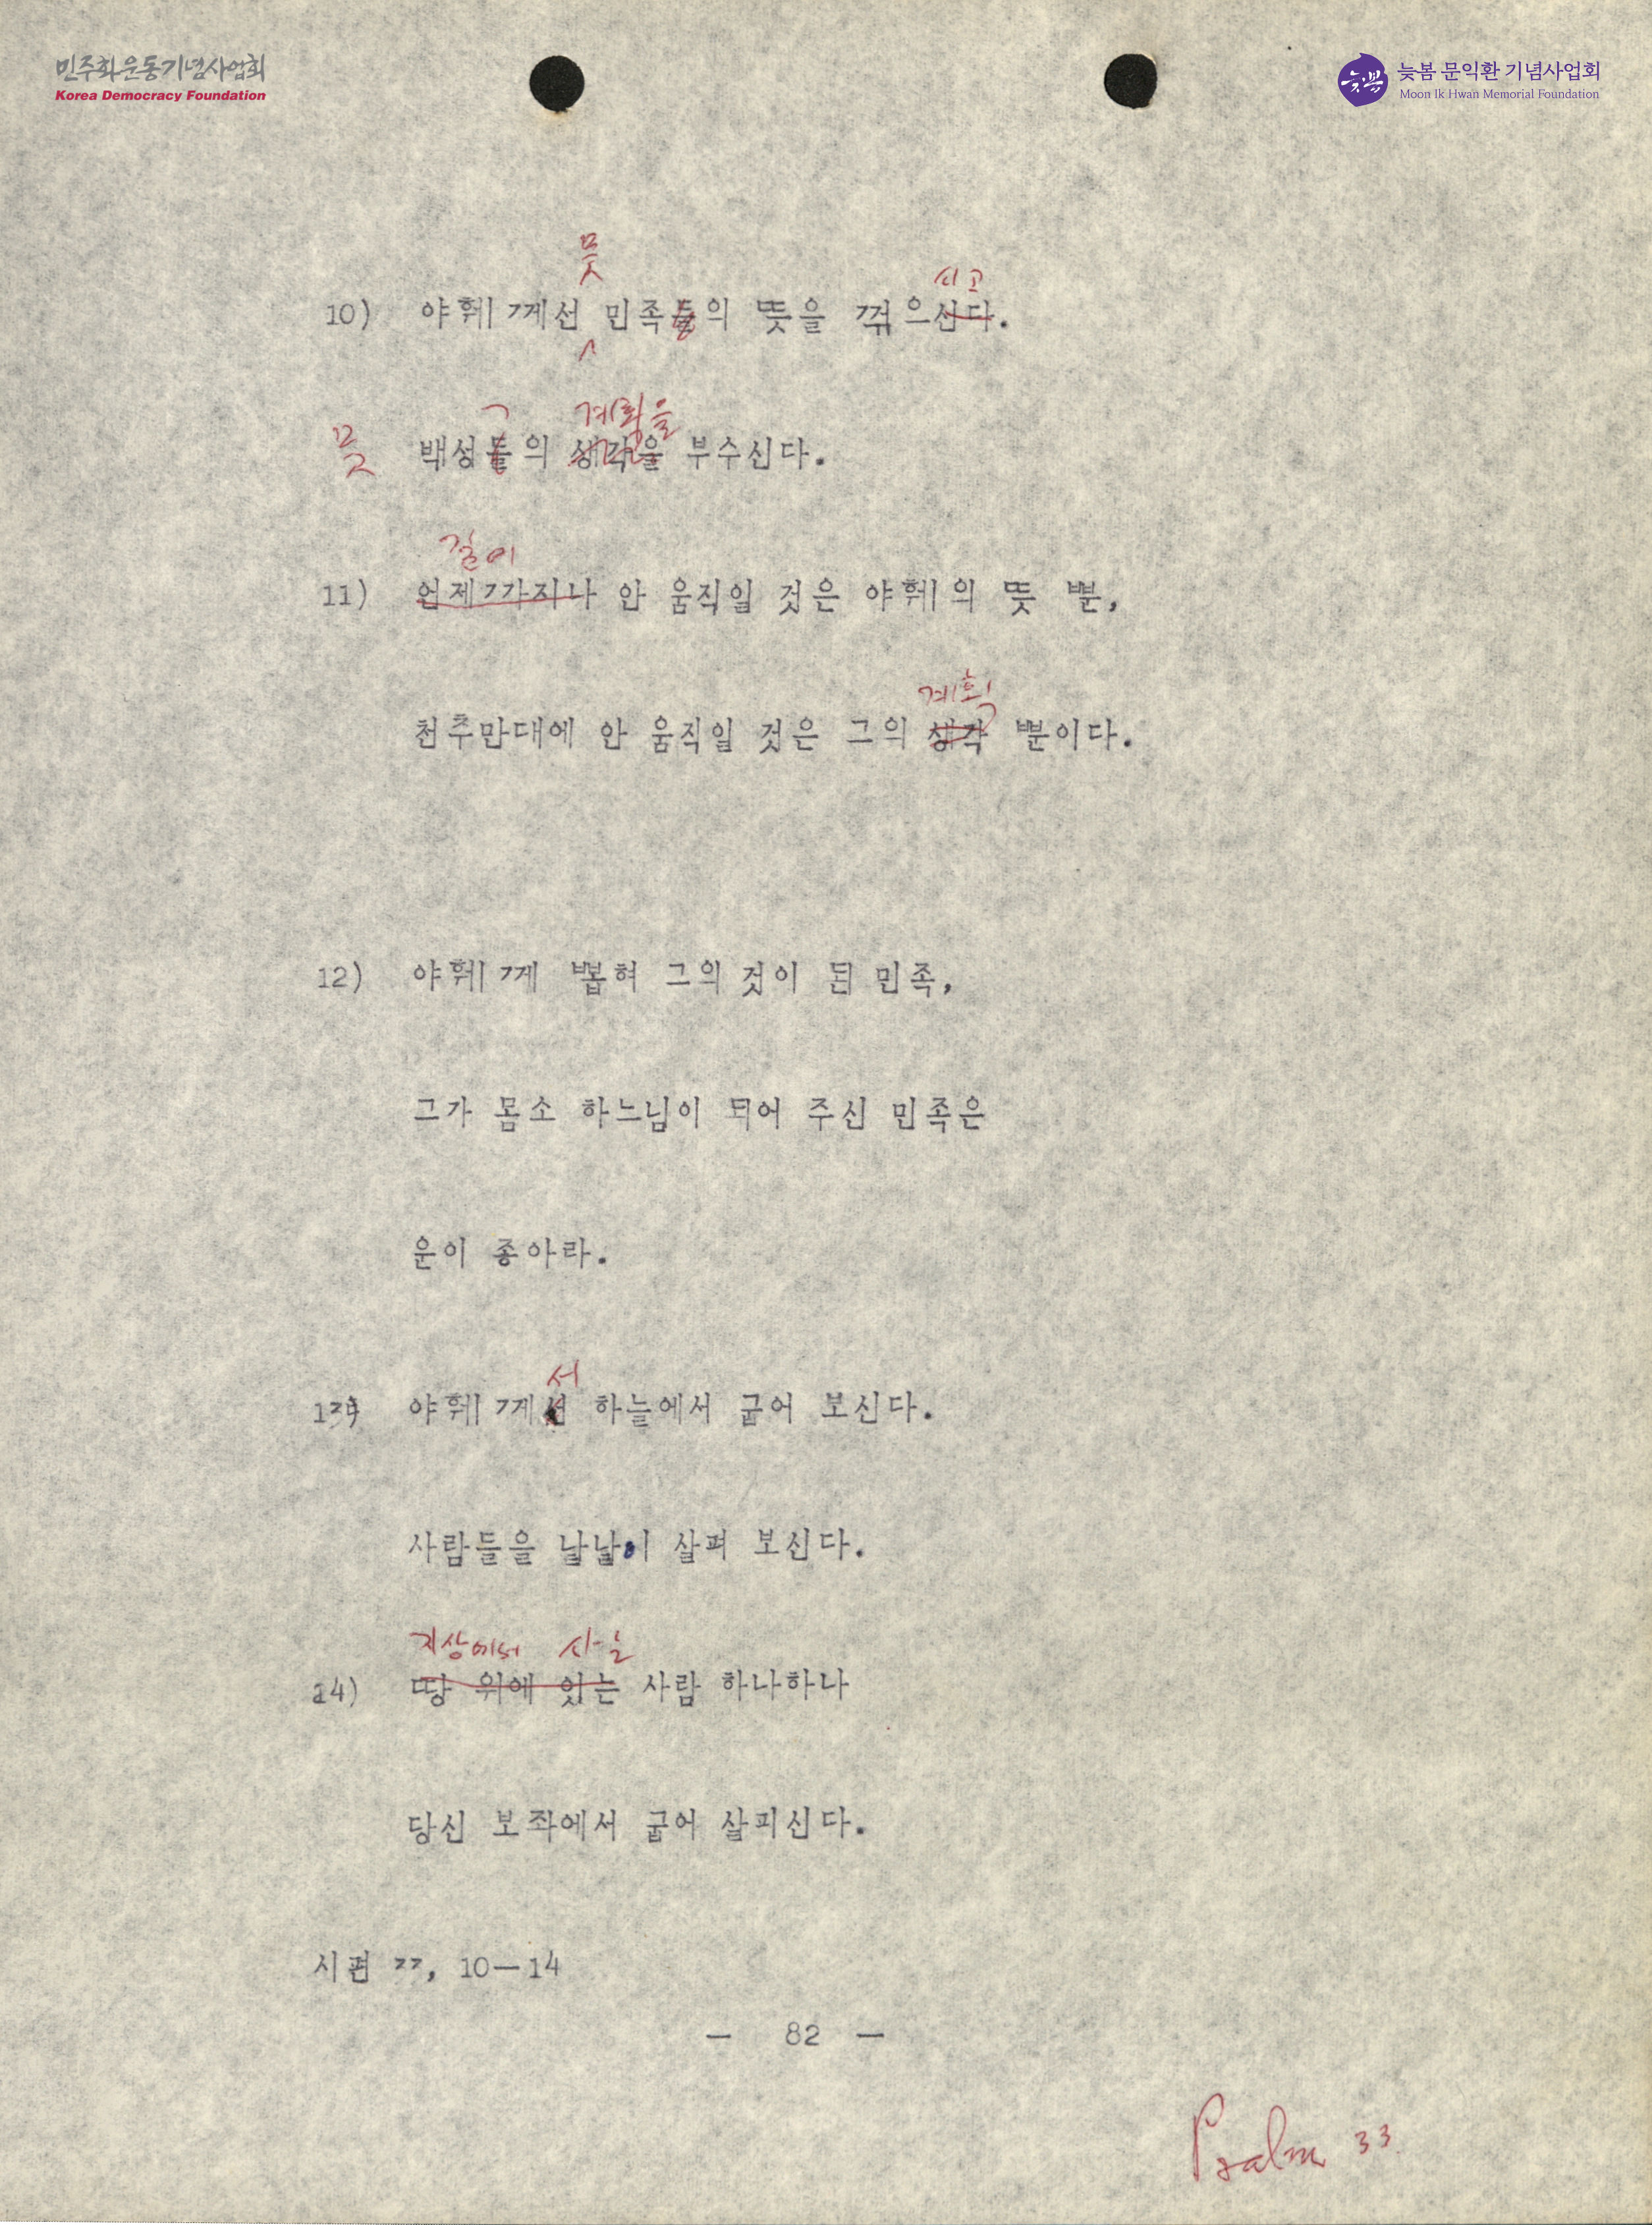 민주화운동기념사업회
Korea Democracy Foundation
늦봄 문익환 기념사업회
Moon Ik Hwan Memorial Foundation
뭇
시고
10) 야훼께선 민족들의 뜻을 꺾으신다.
계획을
뭇 백성들의 생각을 부수신다.
길이
11) 언제까지나 안 움직일 것은 야훼의 뜻 뿐,
계획
천추만대에 안 움직일 것은 그의 생각 뿐이다.
12) 야훼께 뽑혀 그의 것이 된 민족,
그가 몸소 하느님이 되어 주신 민족은
운이 좋아라.
서
13) 야훼께선 하늘에서 굽어 보신다.
사람들을 낱낱이 살펴 보신다.
지상에서 사는
14) 땅 위에 있는 사람 하나하나
당신 보좌에서 굽어 살피신다.
시편 33, 10—14
— 82 —
Psalm 33.